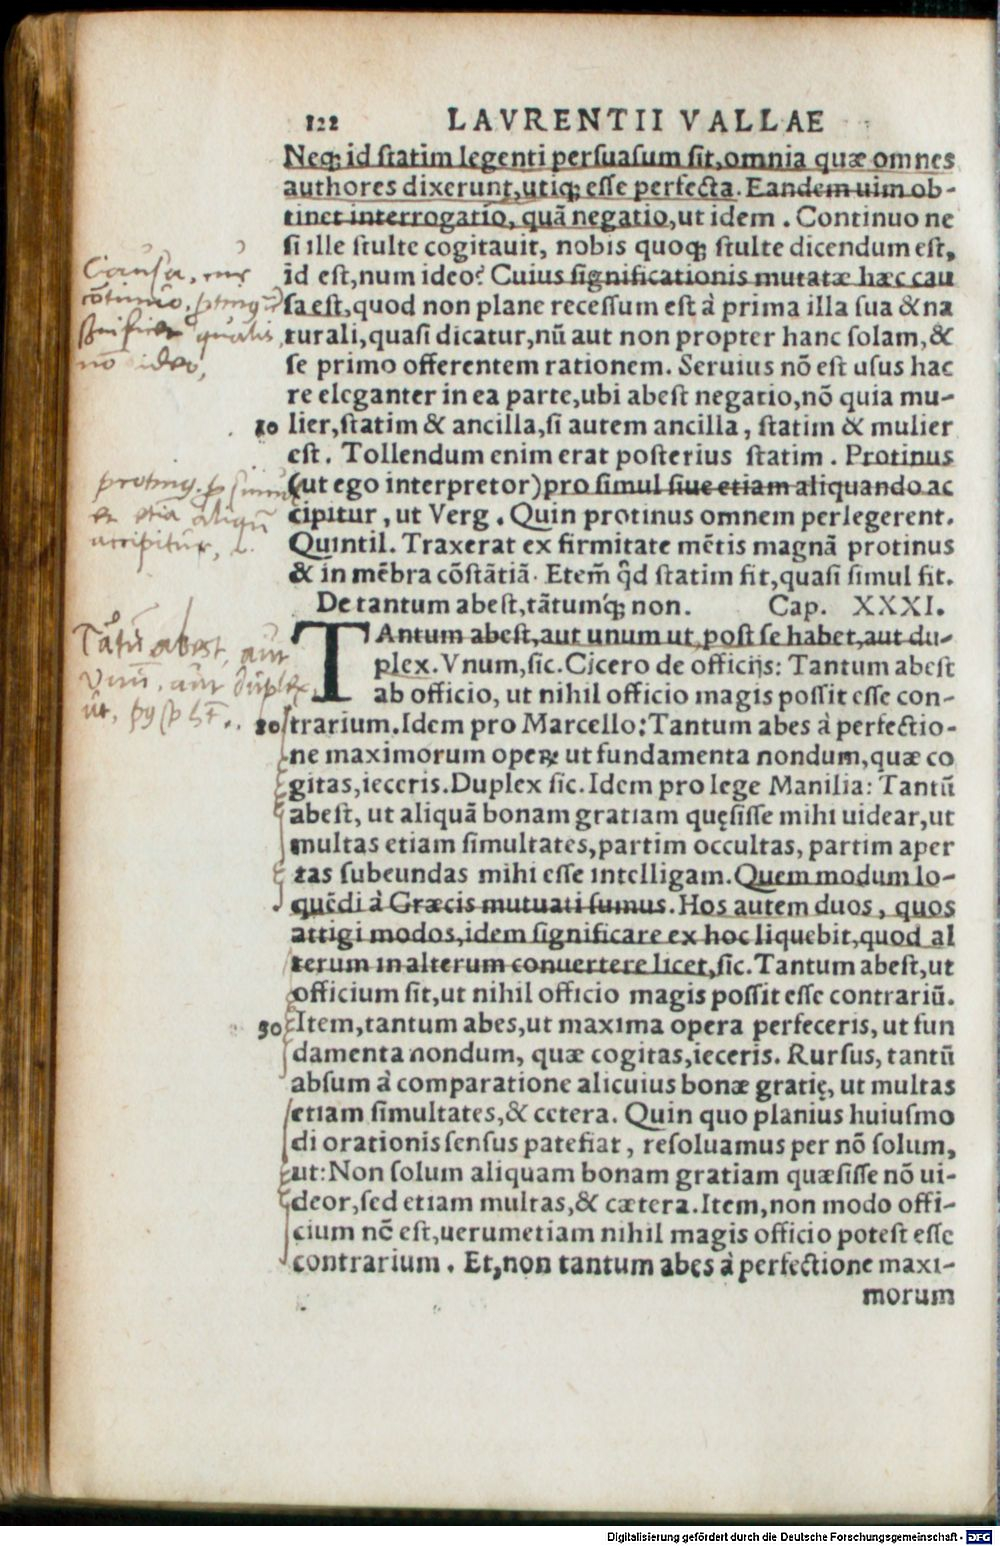 122 LAVRENTII VALLAE
Neq; id statim legenti persuasum sit, omnia quæ omnes
authores dixerunt, utiq; esse perfecta. Eandem uim ob-
tinet interrogatio, quã negatio, ut idem. Continuo ne
si ille stulte cogitauit, nobis quoq; stulte dicendum est,
id est, num ideo? Cuius significationis mutatæ hæc cau
Causa, cur
continuo. protinus
significet qualis
nō ideo,
sa est, quod non plane recessum est à prima illa sua & na
turali, quasi dicatur, nũ aut non propter hanc solam, &
se primo offerentem rationem. Seruius nõ est usus hac
re eleganter in ea parte, ubi abest negatio, nõ quia mu-
10 lier, statim & ancilla, si autem ancilla, statim & mulier
est. Tollendum enim erat posterius statim. Protinus
protinus. p simul
et etiā aliqñ
accipitur,
(ut ego interpretor) pro simul siue etiam aliquando ac
cipitur, ut Verg. Quin protinus omnem perlegerent.
Quintil. Traxerat ex firmitate mẽtis magnã protinus
& in mẽbra cõstãtiã. Etem̃ q̃d statim fit, quasi simul fit.
De tantum abest, tãtumq́; non. Cap. XXXI.
Tātū abest, aut
Vnū, aut duplex
ut,
TAntum abest, aut unum ut, post se habet, aut du-
plex. Vnum, sic. Cicero de officijs: Tantum abest
ab officio, ut nihil officio magis possit esse con-
20 trarium. Idem pro Marcello: Tantum abes à perfectio-
ne maximorum operꝝ ut fundamenta nondum, quæ co
gitas, ieceris. Duplex sic. Idem pro lege Manilia: Tantũ
abest, ut aliquã bonam gratiam quęsisse mihi uidear, ut
multas etiam simultates, partim occultas, partim aper
tas subeundas mihi esse intelligam. Quem modum lo-
quẽdi à Græcis mutuati sumus. Hos autem duos, quos
attigi modos, idem significare ex hoc liquebit, quod al
terum in alterum conuertere licet, sic. Tantum abest, ut
officium sit, ut nihil officio magis possit esse contrariũ.
30 Item, tantum abes, ut maxima opera perfeceris, ut fun
damenta nondum, quæ cogitas, ieceris. Rursus, tantũ
absum à comparatione alicuius bonæ gratię, ut multas
etiam simultates, & cetera. Quin quo planius huiusmo
di orationis sensus patefiat, resoluamus per nõ solum,
ut: Non solum aliquam bonam gratiam quæsisse nõ ui-
deor, sed etiam multas, & cætera. Item, non modo offi-
cium nõ est, uerumetiam nihil magis officio potest esse
contrarium. Et, non tantum abes à perfectione maxi-
morum
Digitalisierung gefördert durch die Deutsche Forschungsgemeinschaft - DFG